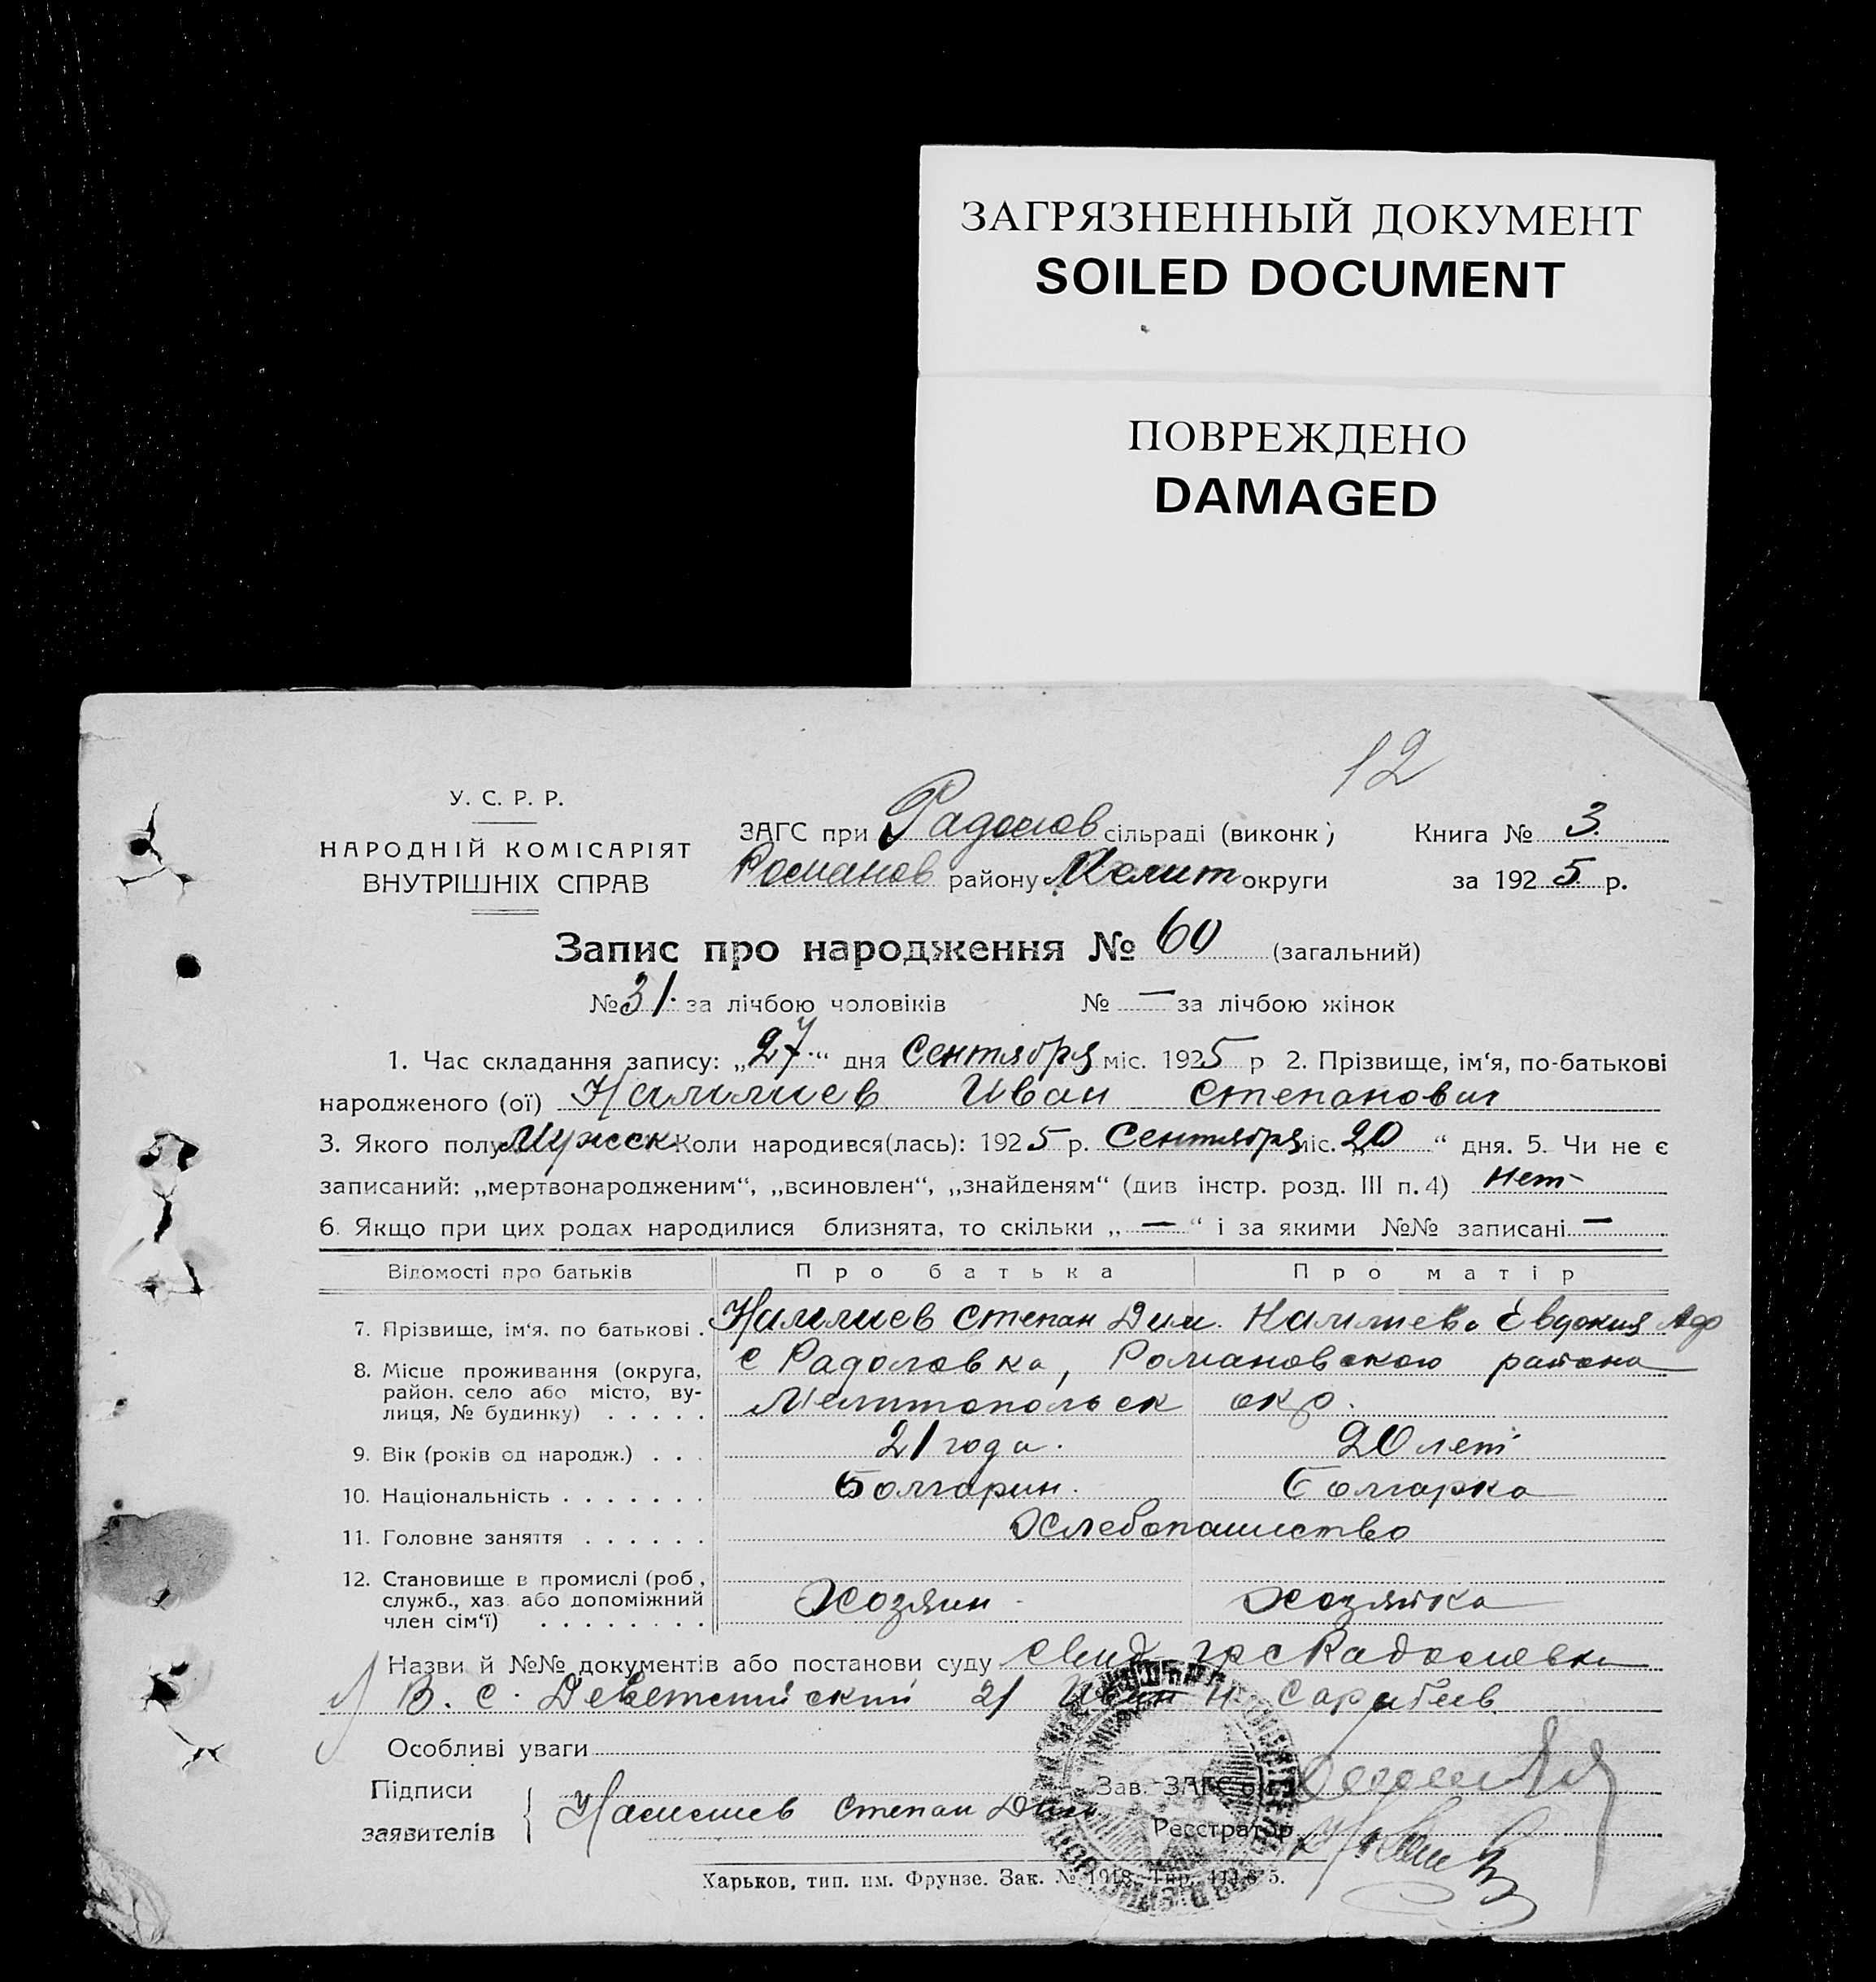 ЗАГРЯЗНЕННЫЙ ДОКУМЕНТ
SOILED DOCUMENT
ПОВРЕЖДЕНО
DAMAGED
12
У. С. Р. Р.
НАРОДНІЙ КОМІСАРІЯТ
ВНУТРІШНІХ СПРАВ
ЗАГС при Радолов сільраді (виконк)
Романов району Мелит округи
Книга № 3.
за 1925 р.
Запис про народження № 60 (загальний)
№ 31. за лічбою чоловіків № — за лічбою жінок
1. Час складання запису: „27“ дня Сентября міс. 1925 р 2. Прізвище, ім‘я, по-батькові
народженого (ої) Иван Степанович
3. Якого полу Мужск Коли народився(лась): 1925 р. Сентября міс. 20 “ дня. 5. Чи не є
записаний: „мертвонародженим“, „всиновлен“, „знайденям“ (див інстр. розд. III п. 4) Нет
6. Якщо при цих родах народилися близнята, то скільки „ — “ і за якими №№ записані —
Відомості про батьків Про батька Про матір
7. Прізвище, ім‘я, по батькові . Степан Дим. Евдокия Аф
8. Місце проживання (округа, район, село або місто, вулиця, № будинку) . . . . .
с Радоловка, Романовского района
Мелитопольск окр.
9. Вік (років од народж.) . . . 21 года. 20 лет
10. Національність . . . . . . . Болгарин. Болгарка
11. Головне заняття . . . . . . Хлебопашество
12. Становище в промислі (роб, служб., хаз. або допоміжний член сім‘ї) . . . . . . . . Хозяин Хозяйка
Назви й №№ документів або постанови суду свид гр с Радоловки
В. С. 2/ Иван
Особливі уваги
Підписи
заявителів
Степан Дим
Зав. ЗАГС‘ом
Реєстратор
Харьков, тип. им. Фрунзе. Зак. № 1918.